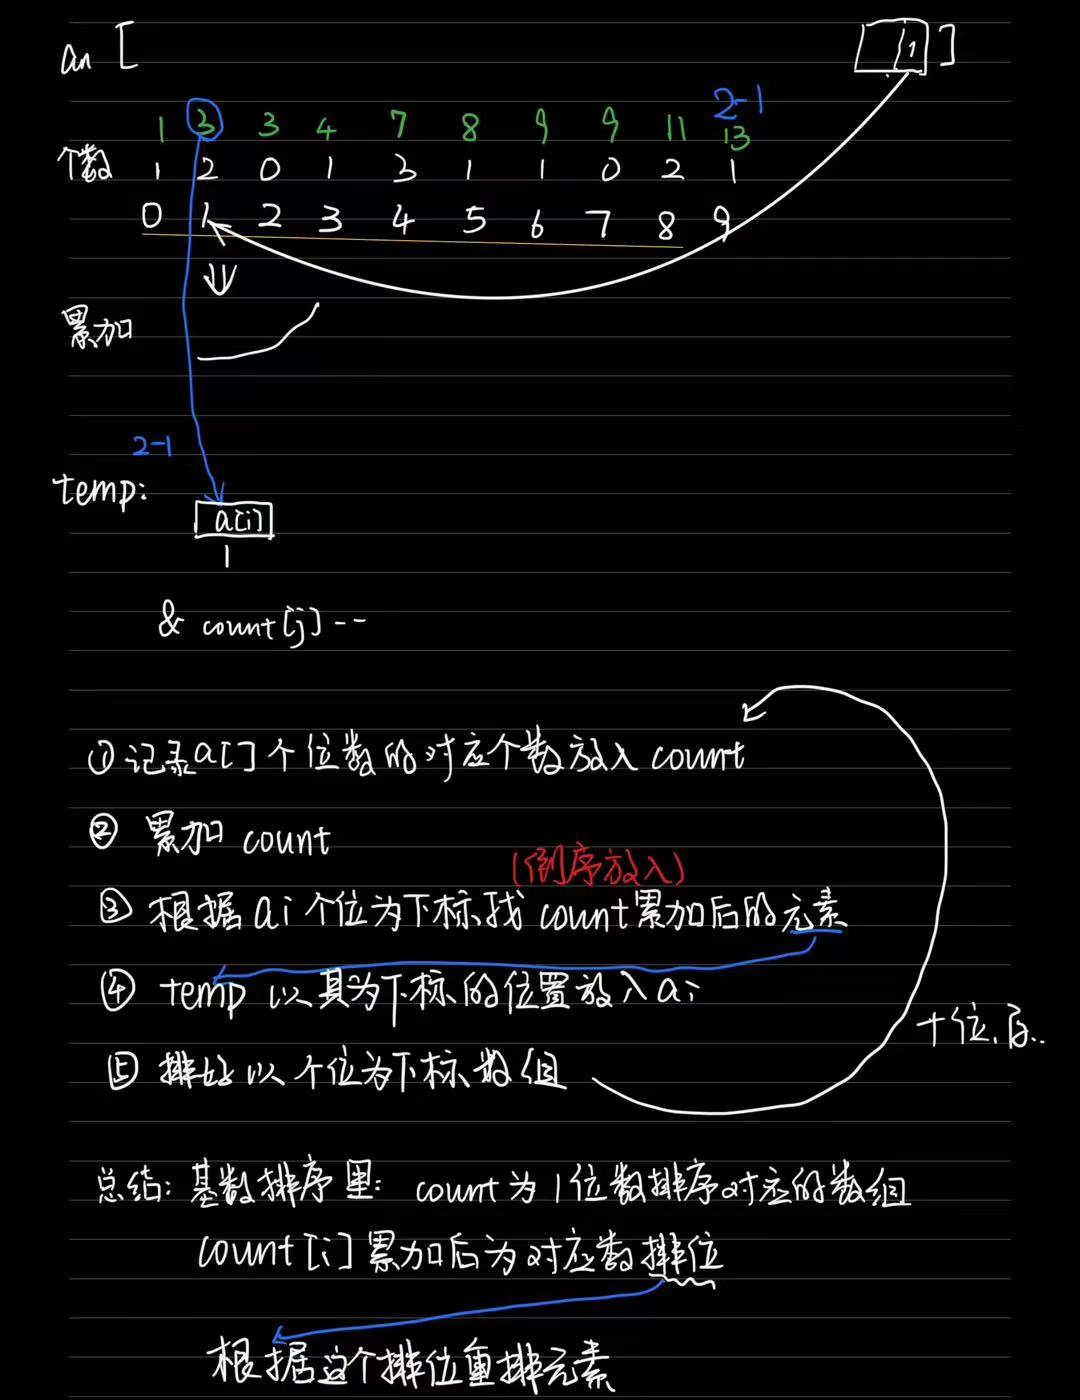 an [ 1 ]
2-1
1 3 3 4 7 8 9 9 11 13
个数 1 2 0 1 3 1 1 0 2 1
0 1 2 3 4 5 6 7 8 9
累加
2-1
temp:
a[i]
1
& count[j]--
①记录a[]个位数的对应个数放入count
② 累加 count
(倒序放入)
③ 根据ai个位为下标,找count累加后的元素
④ temp 以其为下标的位置放入ai
⑤ 排好以个位为下标数组
十位、百..
总结: 基数排序里: count为1位数排序对应的数组
count[i]累加后为对应数排位
根据这个排位重排元素